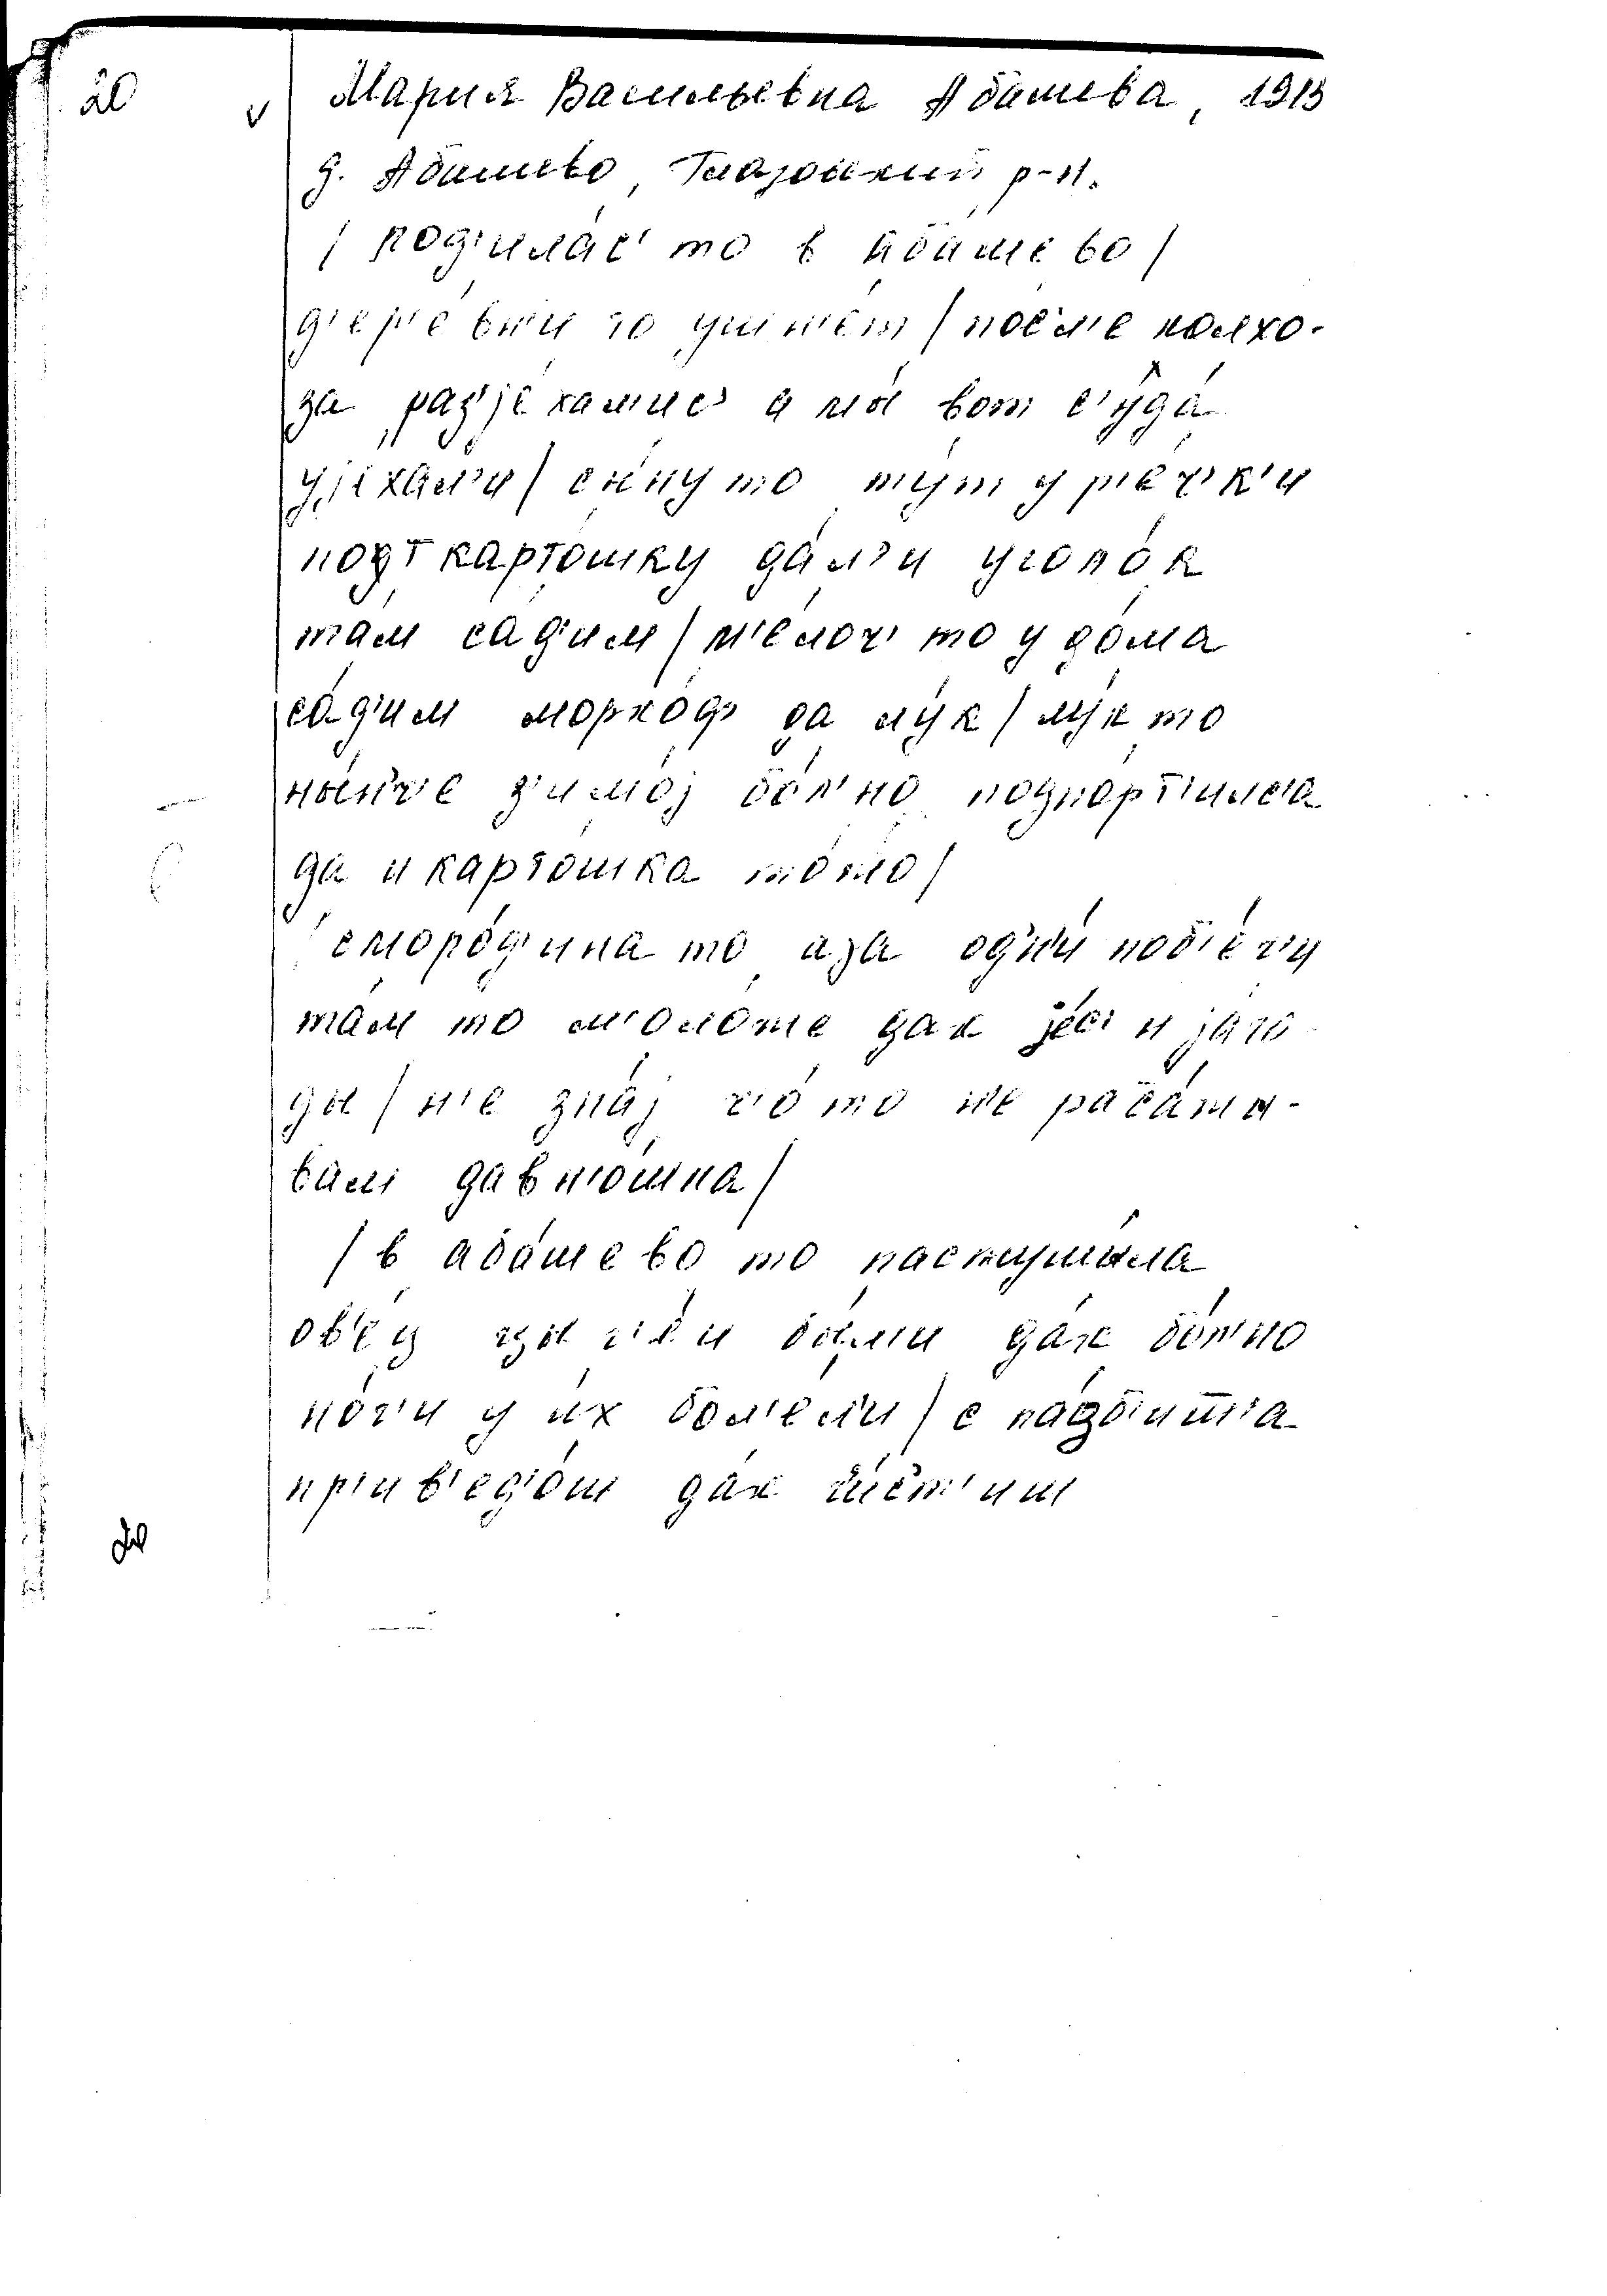 20 v Мария Васильевна Абашева, 1913
д. Абашево, Глазовский р-н.
/ род'ила́с' то в аба́шево /
д'ер'е́вн'и то уш н'е́т / по́сл'е колхо-
за раз'је́хал'ис' а мы́ вот с'уда́
ује́хал'и / сы́ну то ту́т у р'е́ч'к'и
подт карто́шку да́л'и уголо́к
та́м са́д'им / м'е́лоч' то у до́ма
са́д'им морко́ф' да лу́к / лу́к то
ны́н'ч'е з'имо́ј бо́л'но подпо́рт'илс'а
да и карто́шка то́ то /
сморо́д'ина то аза одн'и́ поб'е́г'и
та́м то м'оло́же дак је́с' и јаго
ды / н'е зна́ј ч'о́ то н'е рас̄а́жы-
вал'и давн'о́шна /
/ в аба́шево то пастушы́ла
ов'е́ц ч'јы́ бы́ли да́к бо́л'но
но́г'и у и́х бол'е́л'и / с па́зб'иш̄'а
пр'ив'ед'о́ш да́к
20